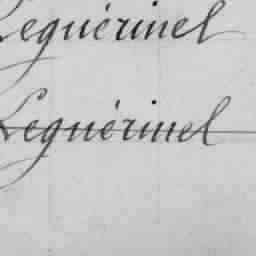 Leguérinel
Leguérinel